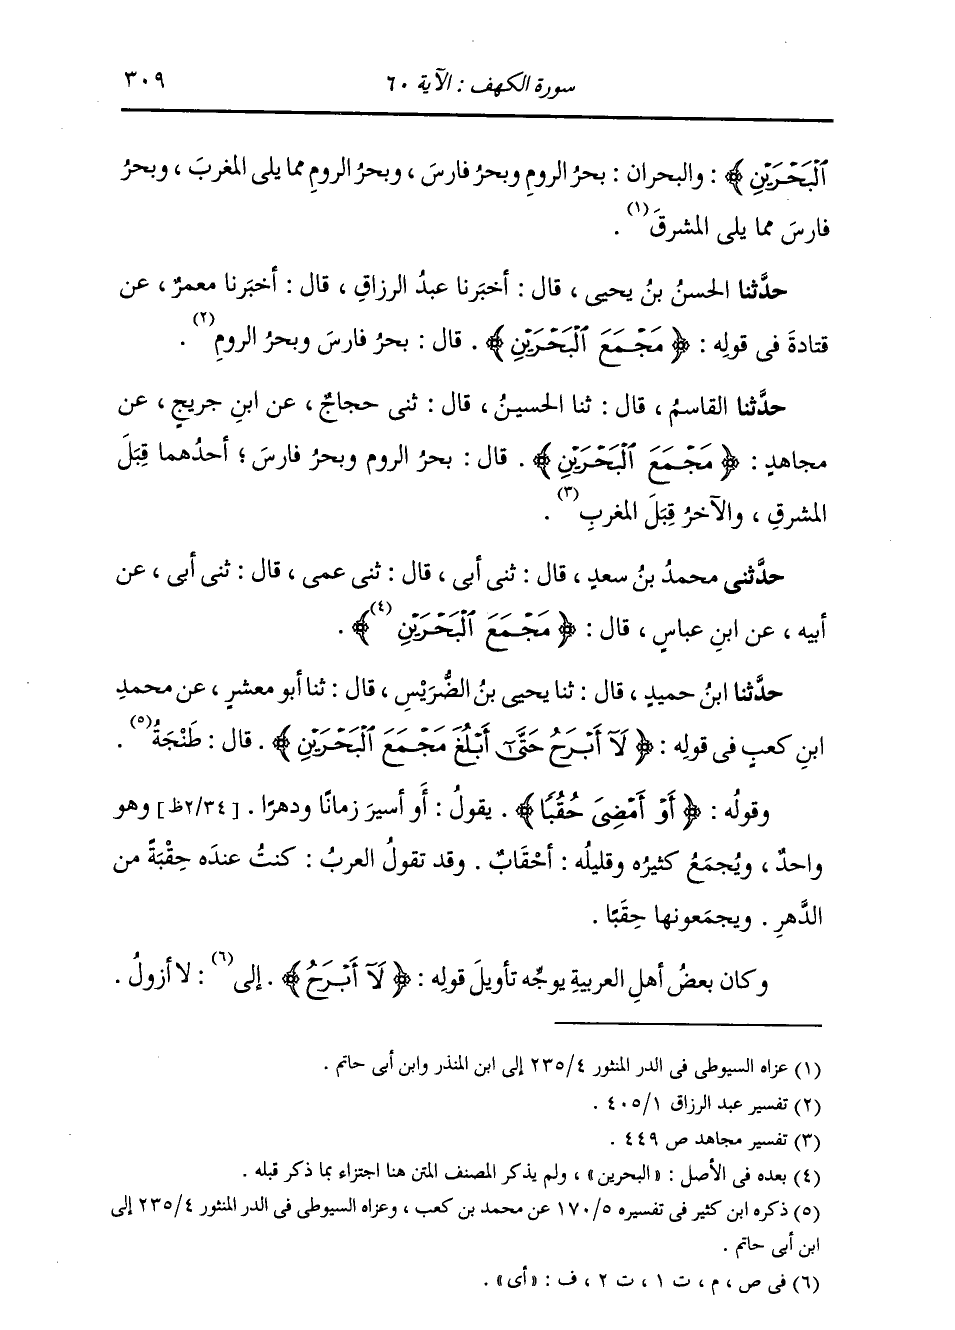 سورة الكهف : الآية ٦٠
٣٠٩
ٱلْبَحْرَيْنِ﴾ : والبحران : بحرُ الرومِ وبحرُ فارسَ ، وبحرُ الرومِ مما يلى المغربَ ، وبحرُ
فارسَ مما يلى المشرقَ(١) .
حدَّثنا الحسنُ بنُ يحيى ، قال : أخبرنا عبدُ الرزاقِ ، قال : أخبَرنا معمرٌ ، عن
قتادةَ فى قولِه : ﴿مَجْمَعَ ٱلْبَحْرَيْنِ﴾ . قال : بحرُ فارسَ وبحرُ الرومِ(٢) .
حدَّثنا القاسمُ ، قال : ثنا الحسينُ ، قال : ثنى حجاجٌ ، عن ابنِ جريجٍ ، عن
مجاهدٍ : ﴿مَجْمَعَ ٱلْبَحْرَيْنِ﴾ . قال : بحرُ الروم وبحرُ فارسَ ؛ أحدُهما قِبَلَ
المشرقِ ، والآخرُ قِبَلَ المغربِ(٣) .
حدَّثنى محمدُ بنُ سعدٍ ، قال : ثنى أبى ، قال : ثنى عمى ، قال : ثنى أبى ، عن
أبيه ، عن ابنِ عباسٍ ، قال : ﴿مَجْمَعَ ٱلْبَحْرَيْنِ(٤)﴾ .
حدَّثنا ابنُ حميدٍ ، قال : ثنا يحيى بنُ الضُّرَيْسِ ، قال : ثنا أبو معشرٍ ، عن محمدِ
ابنِ كعبٍ فى قولِه : ﴿لَآ أَبْرَحُ حَتَّىٰٓ أَبْلُغَ مَجْمَعَ ٱلْبَحْرَيْنِ﴾ . قال : طَنْجَةُ(٥) .
وقولُه : ﴿أَوْ أَمْضِىَ حُقُبًا﴾ . يقولُ : أو أسيرَ زمانًا ودهرًا . [٢/٣٤ظ] وهو
واحدٌ ، ويُجمَعُ كثيرُه وقليلُه : أحْقَابٌ . وقد تقولُ العربُ : كنتُ عندَه حِقْبَةً من
الدَّهرِ . ويجمَعونها حِقَبًا .
وكان بعضُ أهلِ العربيةِ يوجِّه تأويلَ قولِه : ﴿لَآ أَبْرَحُ﴾ . إلى(٦) : لا أزولُ .
(١) عزاه السيوطى فى الدر المنثور ٢٣٥/٤ إلى ابن المنذر وابن أبى حاتم .
(٢) تفسير عبد الرزاق ٤٠٥/١ .
(٣) تفسير مجاهد ص ٤٤٩ .
(٤) بعده فى الأصل : «البحرين» ، ولم يذكر المصنف المتن هنا اجتزاء بما ذكر قبله .
(٥) ذكره ابن كثير فى تفسيره ١٧٠/٥ عن محمد بن كعب ، وعزاه السيوطى فى الدر المنثور ٢٣٥/٤ إلى
ابن أبى حاتم .
(٦) فى ص ، م ، ت ١ ، ت ٢ ، ف : «أى» .